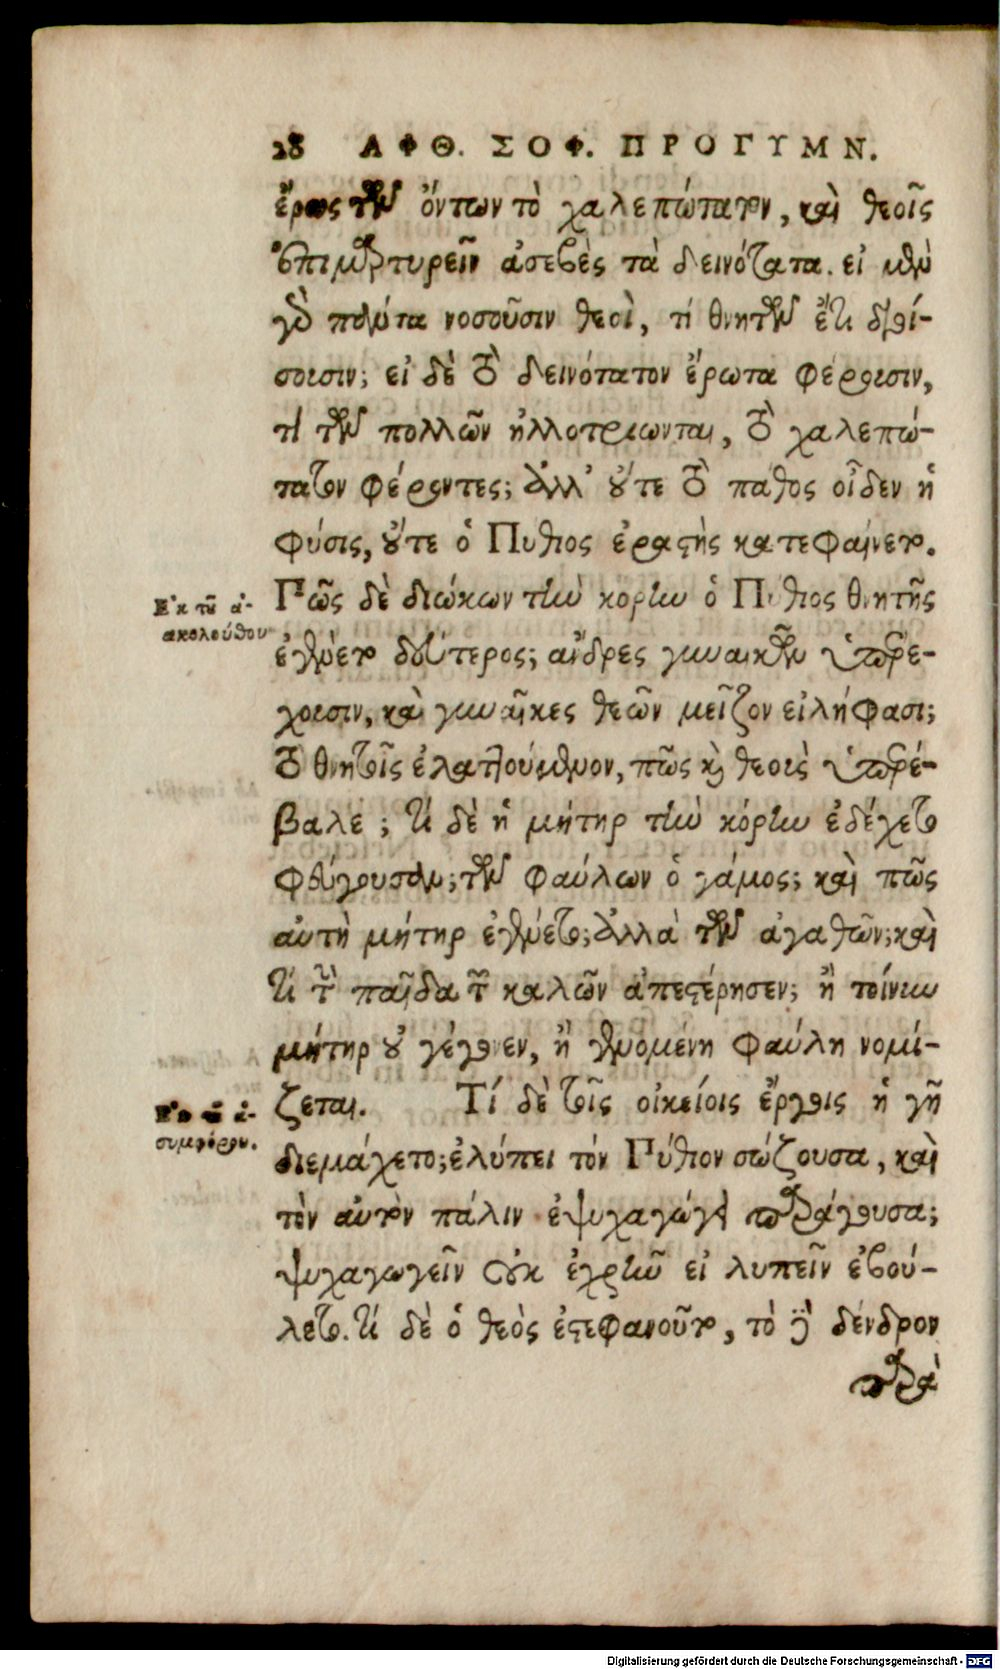 28 ΑΦΘ. ΣΟΦ. ΠΡΟΓΥΜΝ.
ἔρως τῶν ὄντων τὸ χαλεπώτατον, καὶ θεοῖς
ἐπιμαρτυρεῖν ἀσεβὲς τὰ δεινότατα. εἰ μὲν
γὰρ πάντα νοσοῦσιν θεοὶ, τί θνητῶν ἔτι διοί-
σουσιν; εἰ δὲ τὸ δεινότατον ἔρωτα φέρουσιν,
τί τῶν πολλῶν ἠλλοτρίωνται, τὸ χαλεπώ-
τατον φέροντες; ἀλλ᾽ οὔτε τὸ πάθος οἶδεν ἡ
φύσις, οὔτε ὁ Πύθιος ἐραστὴς κατεφαίνετο.
Ἐκ τοῦ ἀ-
ακολούθου
Πῶς δὲ διώκων τὴν κόρην ὁ Πύθιος θνητῆς
ἐγένετο δεύτερος; ἄνδρες γυναικῶν ὑπερέ-
χουσιν, καὶ γυναῖκες θεῶν μεῖζον εἰλήφασι;
τὸ θνητοῖς ἐλαττούμενον, πῶς καὶ θεοὺς ὑπερέ-
βαλε; τί δὲ ἡ μήτηρ τὴν κόρην ἐδέχετο
φεύγουσαν; τῶν φαύλων ὁ γάμος; καὶ πῶς
αὐτὴ μήτηρ ἐγένετο; ἀλλὰ τῶν ἀγαθῶν; καὶ
τί τὴν παῖδα τῶν καλῶν ἀπεστέρησεν; ἢ τοίνυν
μήτηρ οὐ γέγονεν, ἢ γενομένη φαύλη νομί-
ζεται. Τί δὲ τοῖς οἰκείοις ἔργοις ἡ γῆ
Ἐκ τοῦ ἀ-
συμφόρου.
διεμάχετο; ἐλύπει τὸν Πύθιον σώζουσα, καὶ
τὸν αὐτὸν πάλιν ἐψυχαγώγει παράγουσα;
ψυχαγωγεῖν οὐκ ἐχρῆν εἰ λυπεῖν ἐβού-
λετο. τί δὲ ὁ θεὸς ἐστεφανοῦτο, τὸ δένδρον
παρὰ
Digitalisierung gefördert durch die Deutsche Forschungsgemeinschaft - DFG